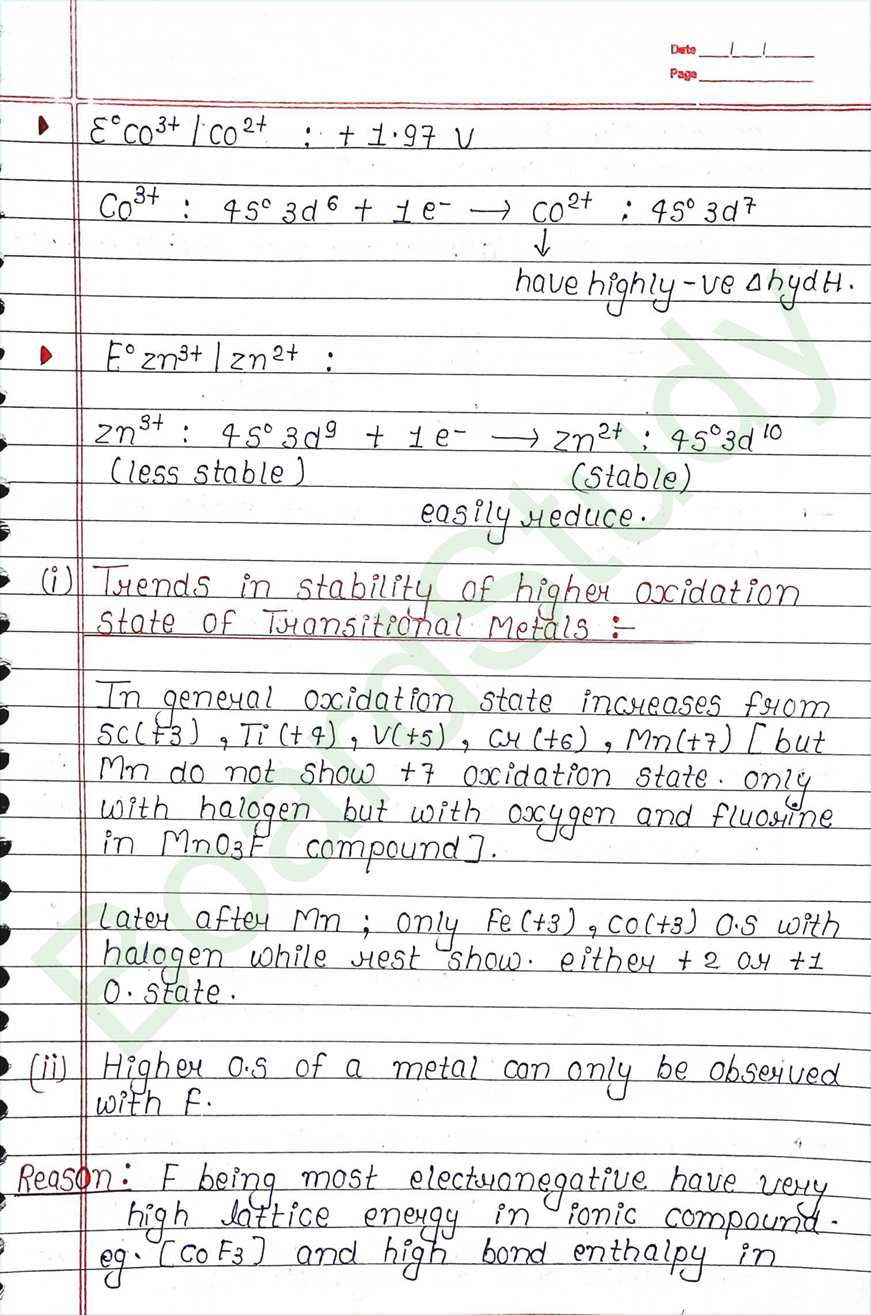 Date __/__/____
Page ________
E°CO³⁺ | CO²⁺ : + 1.97 V
Co³⁺ : 4S⁰ 3d⁶ + 1 e⁻ → CO²⁺ : 4S⁰ 3d⁷
↓
have highly -ve ΔhydH.
E° zn³⁺ | zn²⁺ :
zn³⁺ : 4S⁰ 3d⁹ + 1 e⁻ → zn²⁺ : 4S⁰3d¹⁰
(less stable) (stable)
easily reduce.
(i) Trends in stability of higher oxidation
state of Transitional Metals :-
In general oxidation state increases from
SC(+3), Ti(+4), V(+5), cr(+6), Mn(+7) [but
Mn do not show +7 oxidation state. only
with halogen but with oxygen and fluorine
in MnO3F compound].
later after Mn ; only Fe(+3), CO(+3) O.S with
halogen while rest show. either +2 or +1
O. state.
(ii) Higher O.S of a metal can only be observed
with F.
Reason: F being most electronegative have very
high lattice energy in ionic compound.
eg. [CO F3] and high bond enthalpy in
BoardStudy